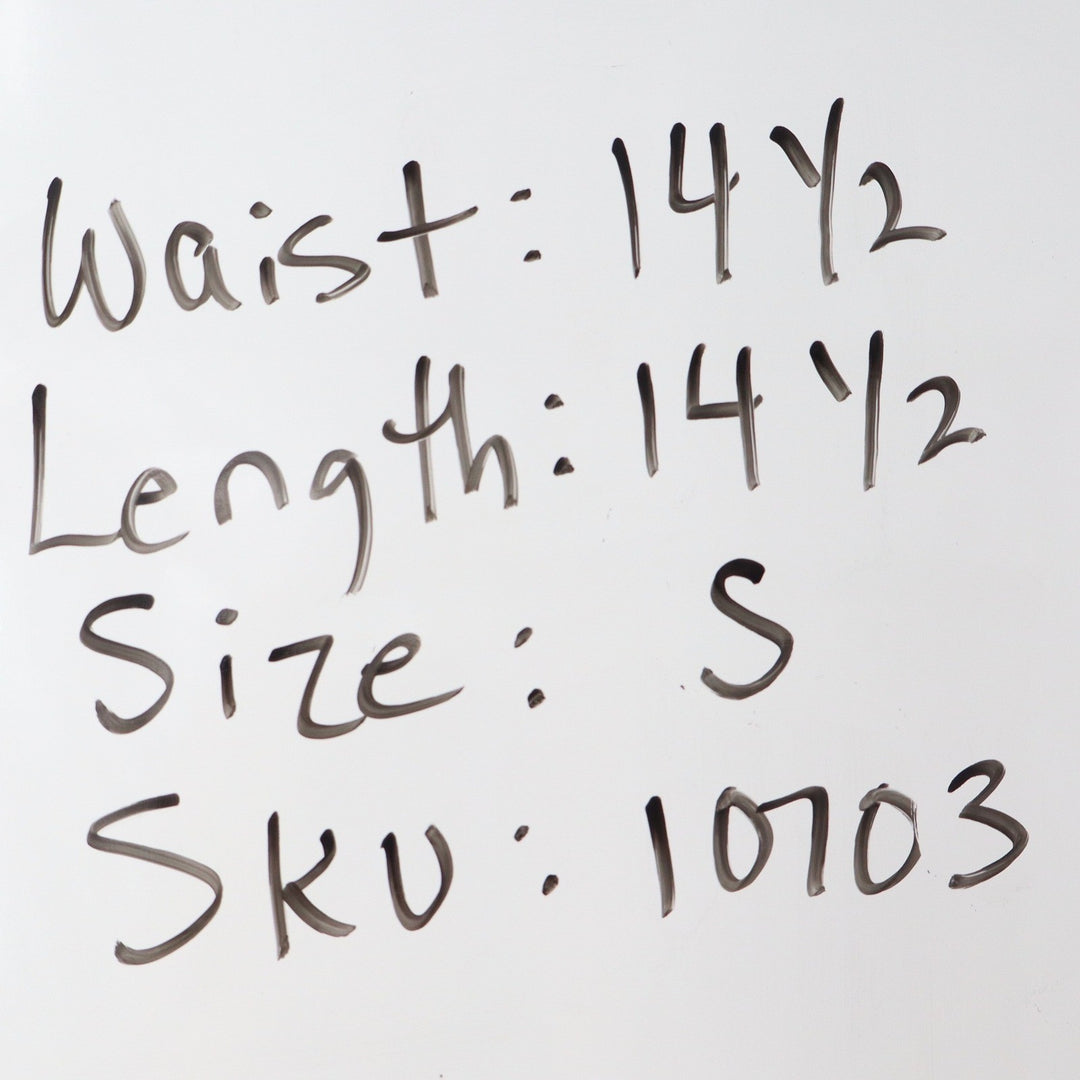 Waist: 14 1/2
Length: 14 1/2
Size: S
SKU: 10703